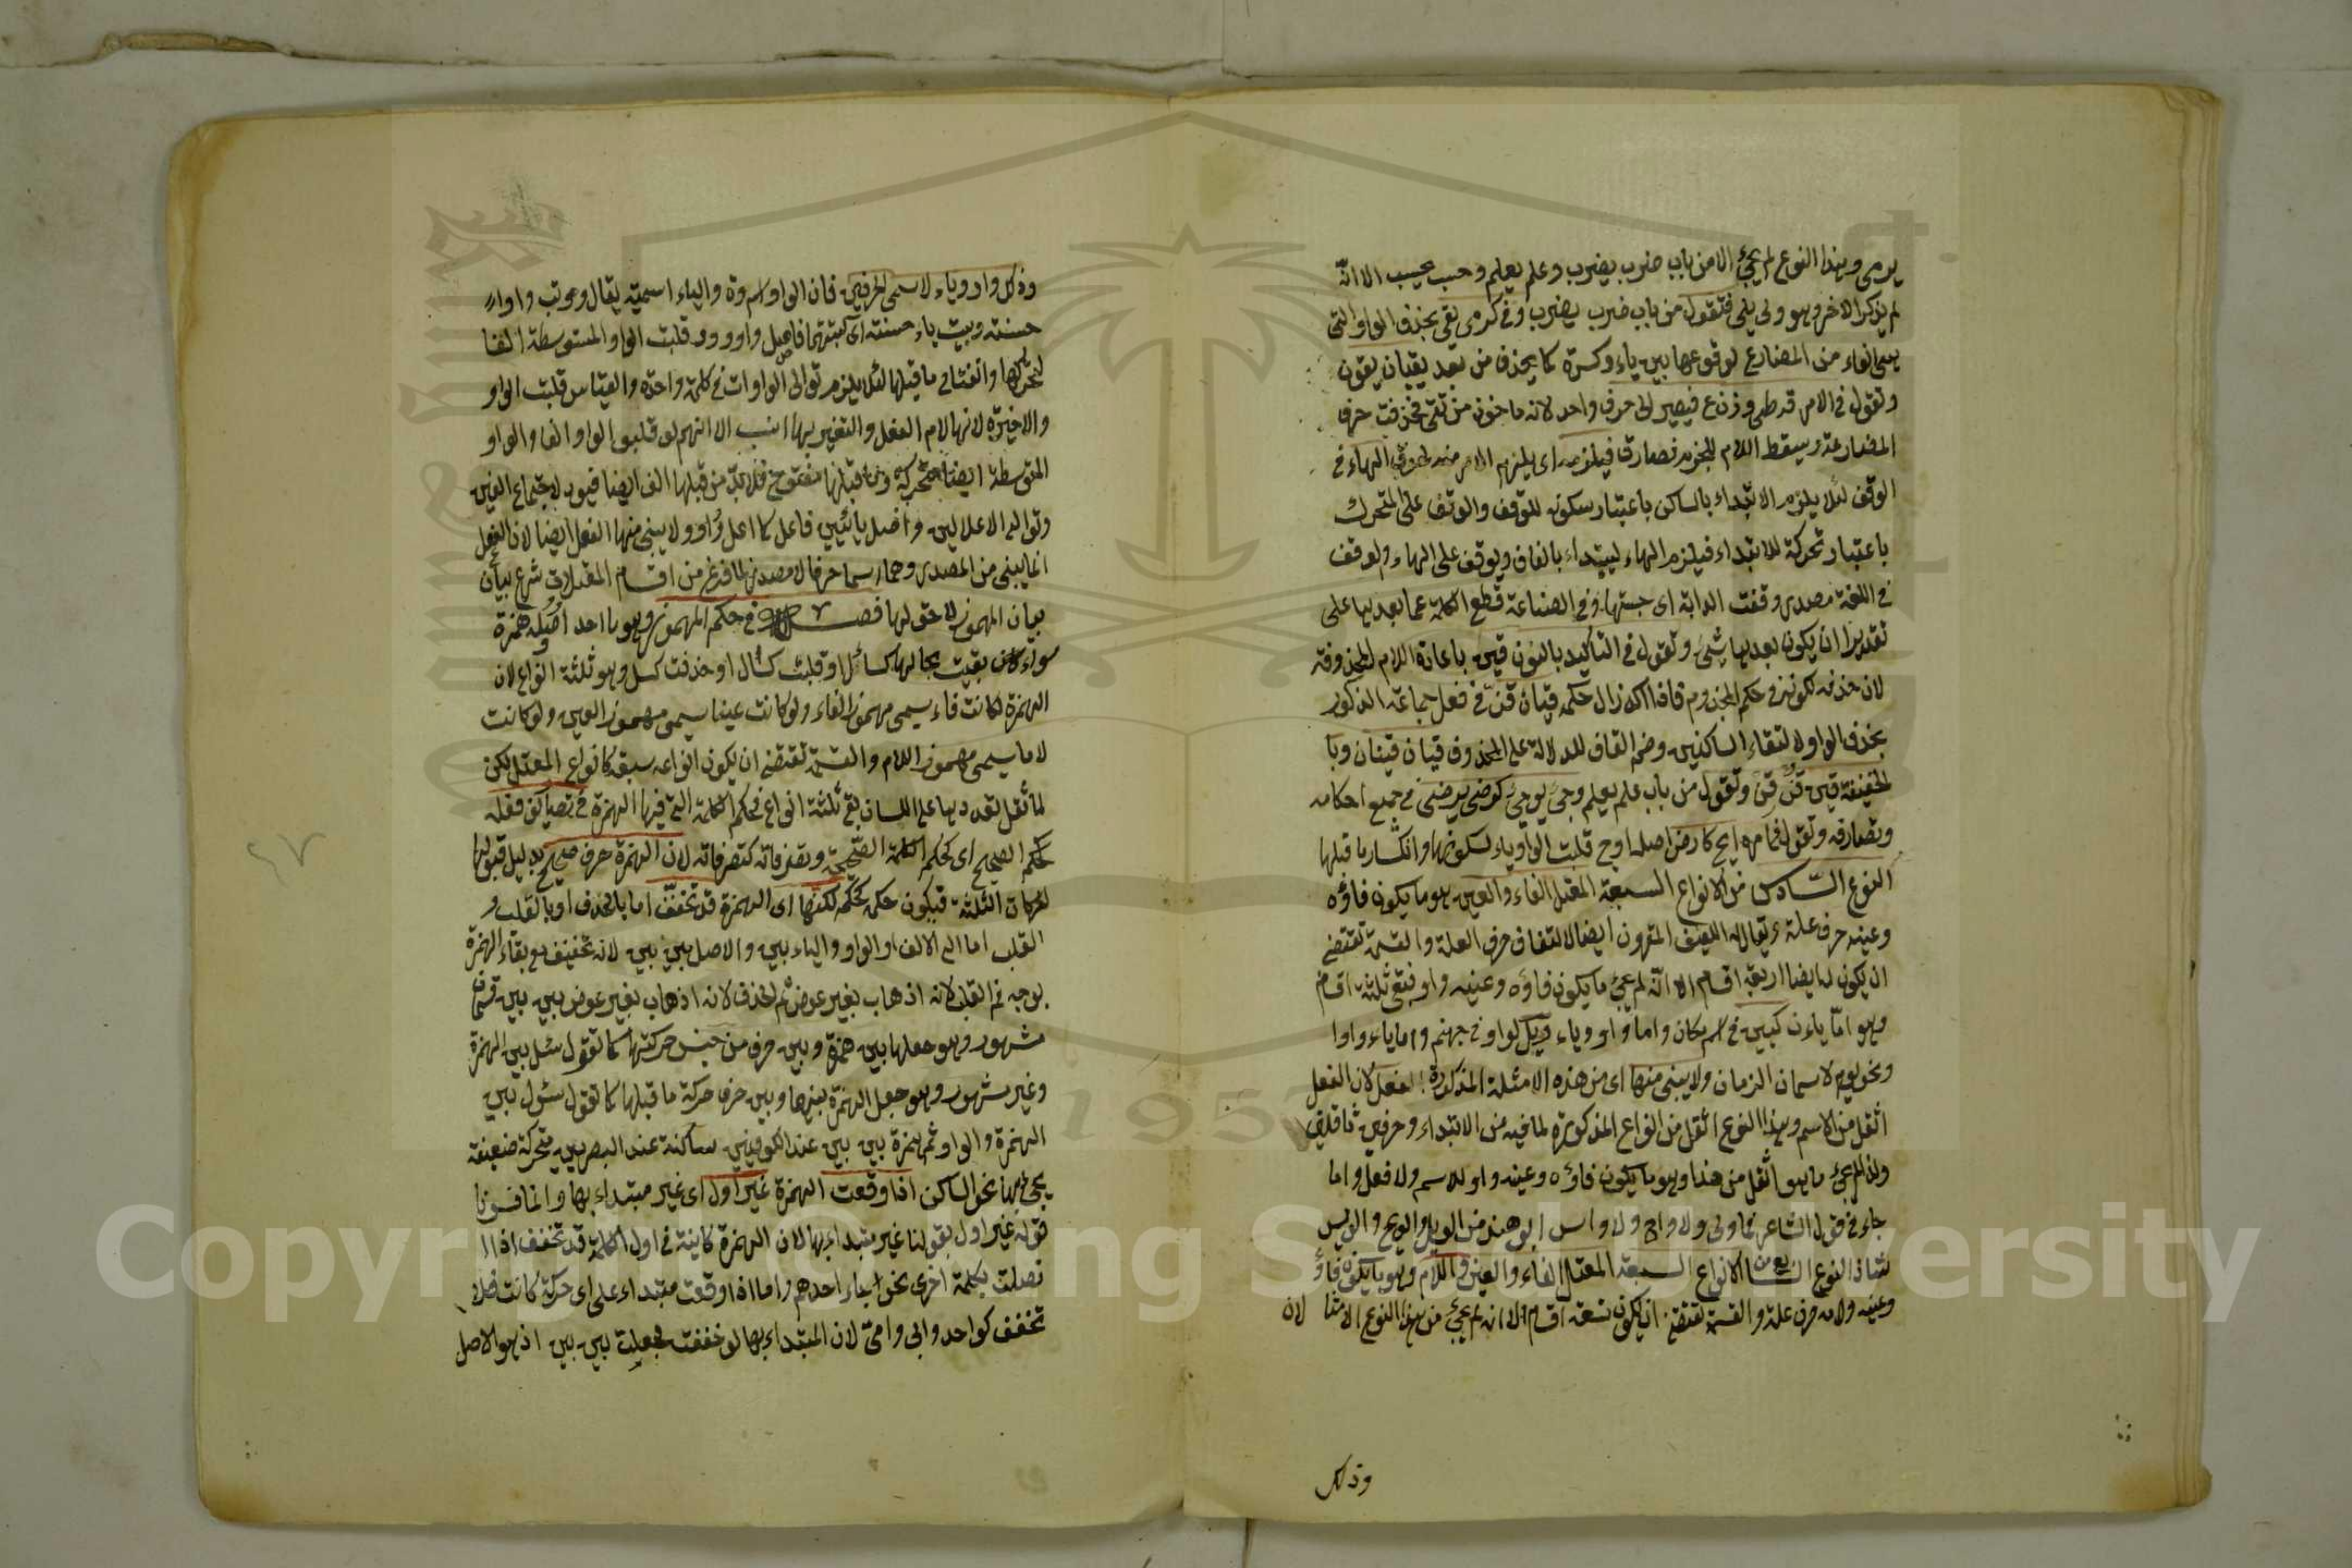 يرمى وهذا النوع لم يجئ الا من باب ضرب يضرب وعلم يعلم وحسب يحسب الا انه
لم يذكر الاخر وهو ولى يلى فتقول من باب ضرب يضرب وقى كرمى يقى بحذف الواو التى
هى الفاء من المضارع لوقوعها بين ياء وكسرة كما يحذف من يعد يقيان يقون
وتقول فى الامر ق فيصير على حرف واحد لانه ماخوذ من تقى فحذفت حرف
المضارعة وسقط اللام للجزم فصار ق فيلزمه اى يلزم الامر منه لحوق الهاء فى
الوقف لئلا يلزم الابتداء بالساكن باعتبار سكونه للوقف والوقف على المتحرك
باعتبار تحركة للابتداء فيلزم الهاء ليبتداء بالقاف ويوقف على الهاء والوقف
فى اللغة مصدر وقفت الدابة اى حبستها وفى الصناعة قطع الكلمة عما بعدها على
تقدير ان يكون بعدها شئ وتقول فى التأكيد بالنون قين باعادة اللام المحذوفة
لان حذفه لكونه فى حكم المجزوم فاذا اكد زال حكمه قيان قن فى فعل جماعة الذكور
بحذف الواو لالتقاء الساكنين وضم القاف للدلالة على المحذوف قيان قينان وبا
لخفيفة قين قن قن وتقول من باب علم يعلم وجى يوجى كرضى يرضى فى جميع احكامه
وتصارفه وتقول فى الامر ايج كارض اصله اوج قلبت الواو ياء لسكونها وانكسار ما قبلها
النوع السادس من الانواع السبعة المعتل الفاء والعين هو ما يكون فاؤه
وعينه حرف علة ويقال له اللفيف المقرون ايضا لالتفاف حرف العلة والقسمة تقتضى
ان يكون له ايضا اربعة اقسام الا انه لم يجئ ما يكون فاؤه وعينه واو فبقى ثلثة اقسام
وهو اما ياءن كيين فى اسم مكان واما واو وياء كويل لواو فى جهنم واما ياء وواوا
ونحو يوم لاسمان الزمان ولا يبنى منها اى من هذه الامثلة المذكورة الفعل لان الفعل
اثقل من الاسم وهذا النوع اثقل من الانواع المذكورة لما فيه من الابتداء وحرفين ثقلين
ولذا لم يجئ ما هو اثقل من هذا وهو ما يكون فاؤه وعينه واو للاسم ولا فعل واما
جاء فى قول الشاعر فما ولى ولا واح ولا واس ابو هند من الويل والويح والويس
لشاذ النوع السابع من الانواع السبعة المعتل الفاء والعين واللام وهو ما يكون فاؤه
وعينه ولامه حرف علة والقسمة تقتضى ان يكون تسعة اقسام الا انه لم يجئ من هذا النوع الا مثنا لان
وذلك
وذلك واو وياء لاسمى الحرفين فان الواو اسم وه والياء اسم يه يقال
حسنة وبيت ياء حسنة اى كتبتهما فاصل واو ووو قلبت الواو المتوسطة الفا
لتحركها وانفتاح ما قبلها لئلا يلزم توالى الواوات فى كلمة واحدة والقياس قلبت الواو
والاخيرة لانها لام الفعل والتغيير بها انسب الا انهم لو قلبوا الواو الفا والواو
المتوسطة ايضا متحركة وما قبلها مفتوح فلا بد من قبلها الف ايضا فيود لاجتماع الفين
وتوالى الاعلالين واصل يا ييى فاعل كما اعل واو ولا يبنى منهما الفعل ايضا لان الفعل
انما يبنى من المصدر وهما اسما حرفا لا مصدر لما فرغ من اقسام المعتلات شرع بيان
بيان المهموز لاحق لها فصل فى حكم المهموز وهو ما احد اصوله همزة
سواء كان بقيت بحالها كسأل او قلبت كسال او حذفت كسل وهو ثلثة انواع لان
الهمزة لو كانت فاء يسمى مهموز الفاء ولو كانت عينا يسمى مهموز العين ولو كانت
لاما يسمى مهموز اللام والقسمة تقتضى ان يكون انواعه سبعة كانواع المعتل لكن
لما ثقل تعددها على اللسان بقى ثلثة انواع فحكم الكلمة التى فيها الهمزة فى تصاريف فعله
كحكم الصحيح اى كحكم الكلمة الصحيحة وتصرفاته كتصرفاته لان الهمزة حرف صحيح بدليل قبولها
لحركات الثلثة فيكون حكمه كحكمه لكنها اى الهمزة قد تخفف اما بالحذف او بالقلب و
القلب اما الى الالف او الواو والياء بين والاصل بين بين لانه تخفيف مع بقاء الهمزة
بوجه ثم القلب لانه اذهاب بغير عوض ثم الحذف لانه اذهاب بغير عوض بين بين قسمان
مشهور وهو جعلها بين همزة وبين حرف من جنس حركتها كما تقول سئل بين الهمزة
وغير مشهور وهو جعل الهمزة بينها وبين حرف حركة ما قبلها كما تقول سئول بين
الهمزة والواو ثم همزة بين بين عند الكوفيين ساكنة عند البصريين متحركة ضعيفة
نحو الساكن اذا وقعت الهمزة غير اول اى غير مبتداء بها وانما فسرنا
قوله غير اول بقولنا غير مبتداء بها لان الهمزة كاينة فى اول الكلمة قد تخفف اذا ا
تصلت بكلمة اخرى نحو اجاء احدهم واما اذا وقعت مبتداء على اى حركة كانت فلا
تخفف كواحد وابى وامى لان المبتداء بها لو خففت فجعلت بين بين اذ هو الاصل
Copyright © King Saud University
1957